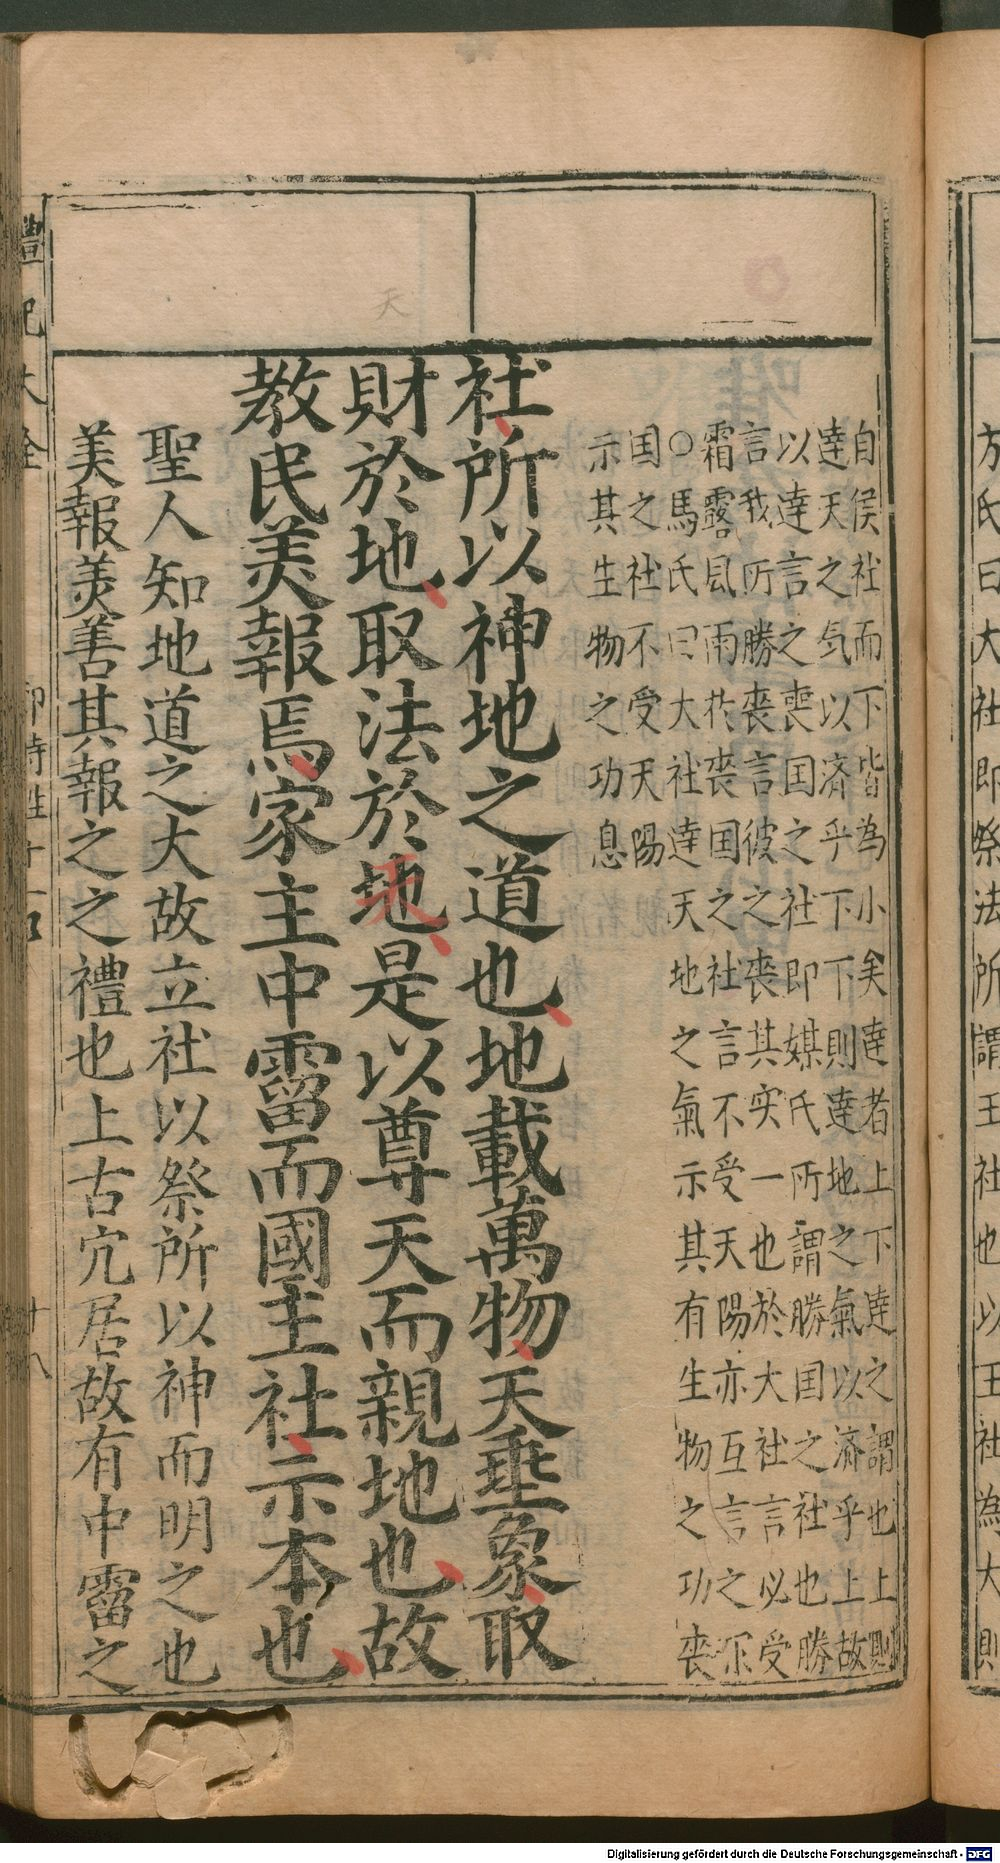 方氏曰大社即祭法所謂王社也以王社為大則
自侯社而下皆為小矣達者上下達之謂也上則
達天之気以済乎下下則達地之氣以済乎上故
以達言之喪国之社即媒氏所謂勝国之社也勝
言我所勝丧言彼之丧其实一也於大社言必受
霜露风雨於丧国之社言不受天陽亦互言之尔
○馬氏曰大社達天地之氣示其有生物之功丧
国之社不受天陽
示其生物之功息
社所以神地之道也地載萬物天垂象取
財於地取法於地是以尊天而親地也故
教民美報焉家主中霤而國主社示本也
聖人知地道之大故立社以祭所以神而明之也
美報美善其報之之禮也上古穴居故有中霤之
天
禮記大全
郊特牲十一
十八
Digitalisierung gefördert durch die Deutsche Forschungsgemeinschaft - DFG